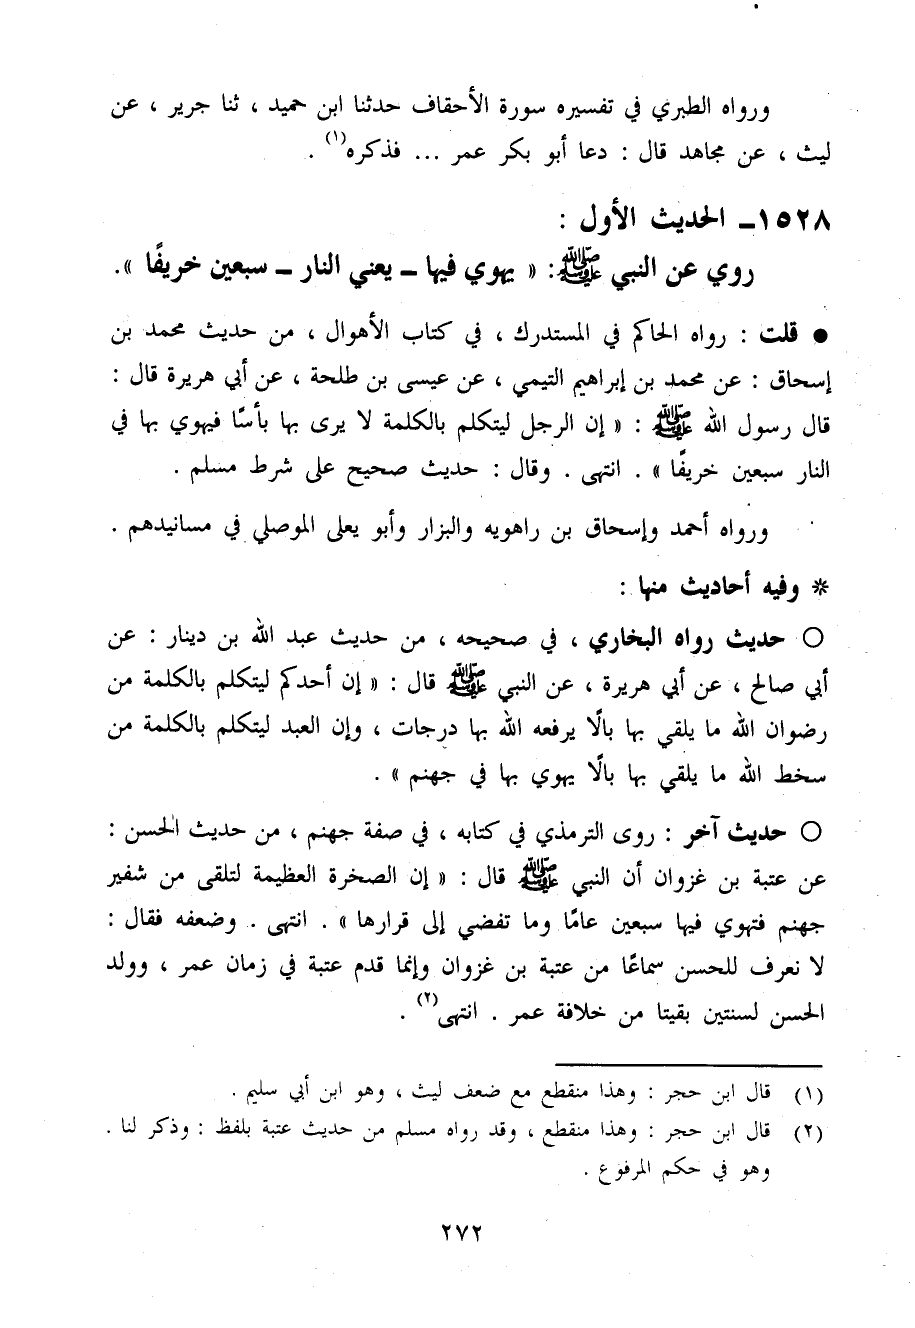 ورواه الطبري في تفسيره سورة الأحقاف حدثنا ابن حميد ، ثنا جرير ، عن
ليث ، عن مجاهد قال : دعا أبو بكر عمر ... فذكره(١) .
١٥٢٨ـ الحديث الأول :
روي عن النبي ﷺ: « يهوي فيها ـ يعني النار ـ سبعين خريفًا ».
● قلت : رواه الحاكم في المستدرك ، في كتاب الأهوال ، من حديث محمد بن
إسحاق : عن محمد بن إبراهيم التيمي ، عن عيسى بن طلحة ، عن أبي هريرة قال :
قال رسول الله ﷺ : « إن الرجل ليتكلم بالكلمة لا يرى بها بأسًا فيهوي بها في
النار سبعين خريفًا » . انتهى . وقال : حديث صحيح على شرط مسلم .
ورواه أحمد وإسحاق بن راهويه والبزار وأبو يعلى الموصلي في مسانيدهم .
* وفيه أحاديث منها :
○ حديث رواه البخاري ، في صحيحه ، من حديث عبد الله بن دينار : عن
أبي صالح ، عن أبي هريرة ، عن النبي ﷺ قال : « إن أحدكم ليتكلم بالكلمة من
رضوان الله ما يلقي بها بالًا يرفعه الله بها درجات ، وإن العبد ليتكلم بالكلمة من
سخط الله ما يلقي بها بالًا يهوي بها في جهنم » .
○ حديث آخر : روى الترمذي في كتابه ، في صفة جهنم ، من حديث الحسن :
عن عتبة بن غزوان أن النبي ﷺ قال : « إن الصخرة العظيمة لتلقى من شفير
جهنم فتهوي فيها سبعين عامًا وما تفضي إلى قرارها » . انتهى . وضعفه فقال :
لا نعرف للحسن سماعًا من عتبة بن غزوان وإنما قدم عتبة في زمان عمر ، وولد
الحسن لسنتين بقيتا من خلافة عمر . انتهى(٢) .
(١) قال ابن حجر : وهذا منقطع مع ضعف ليث ، وهو ابن أبي سليم .
(٢) قال ابن حجر : وهذا منقطع ، وقد رواه مسلم من حديث عتبة بلفظ : وذكر لنا .
وهو في حكم المرفوع .
٢٧٢